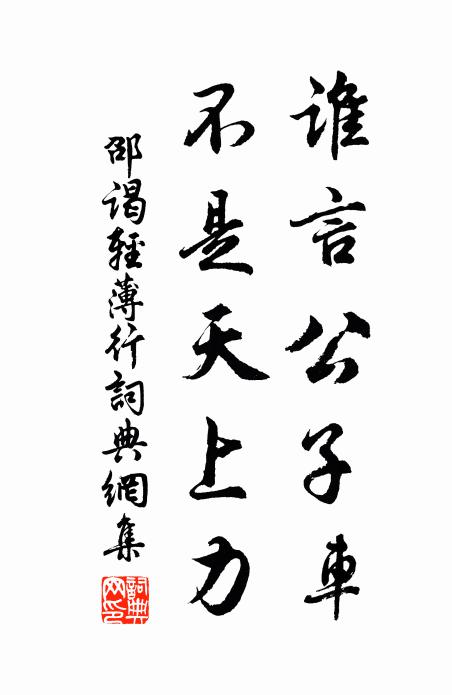 誰言公子車
不是天上力
邵謁輕薄行詞典網集
詞典网印